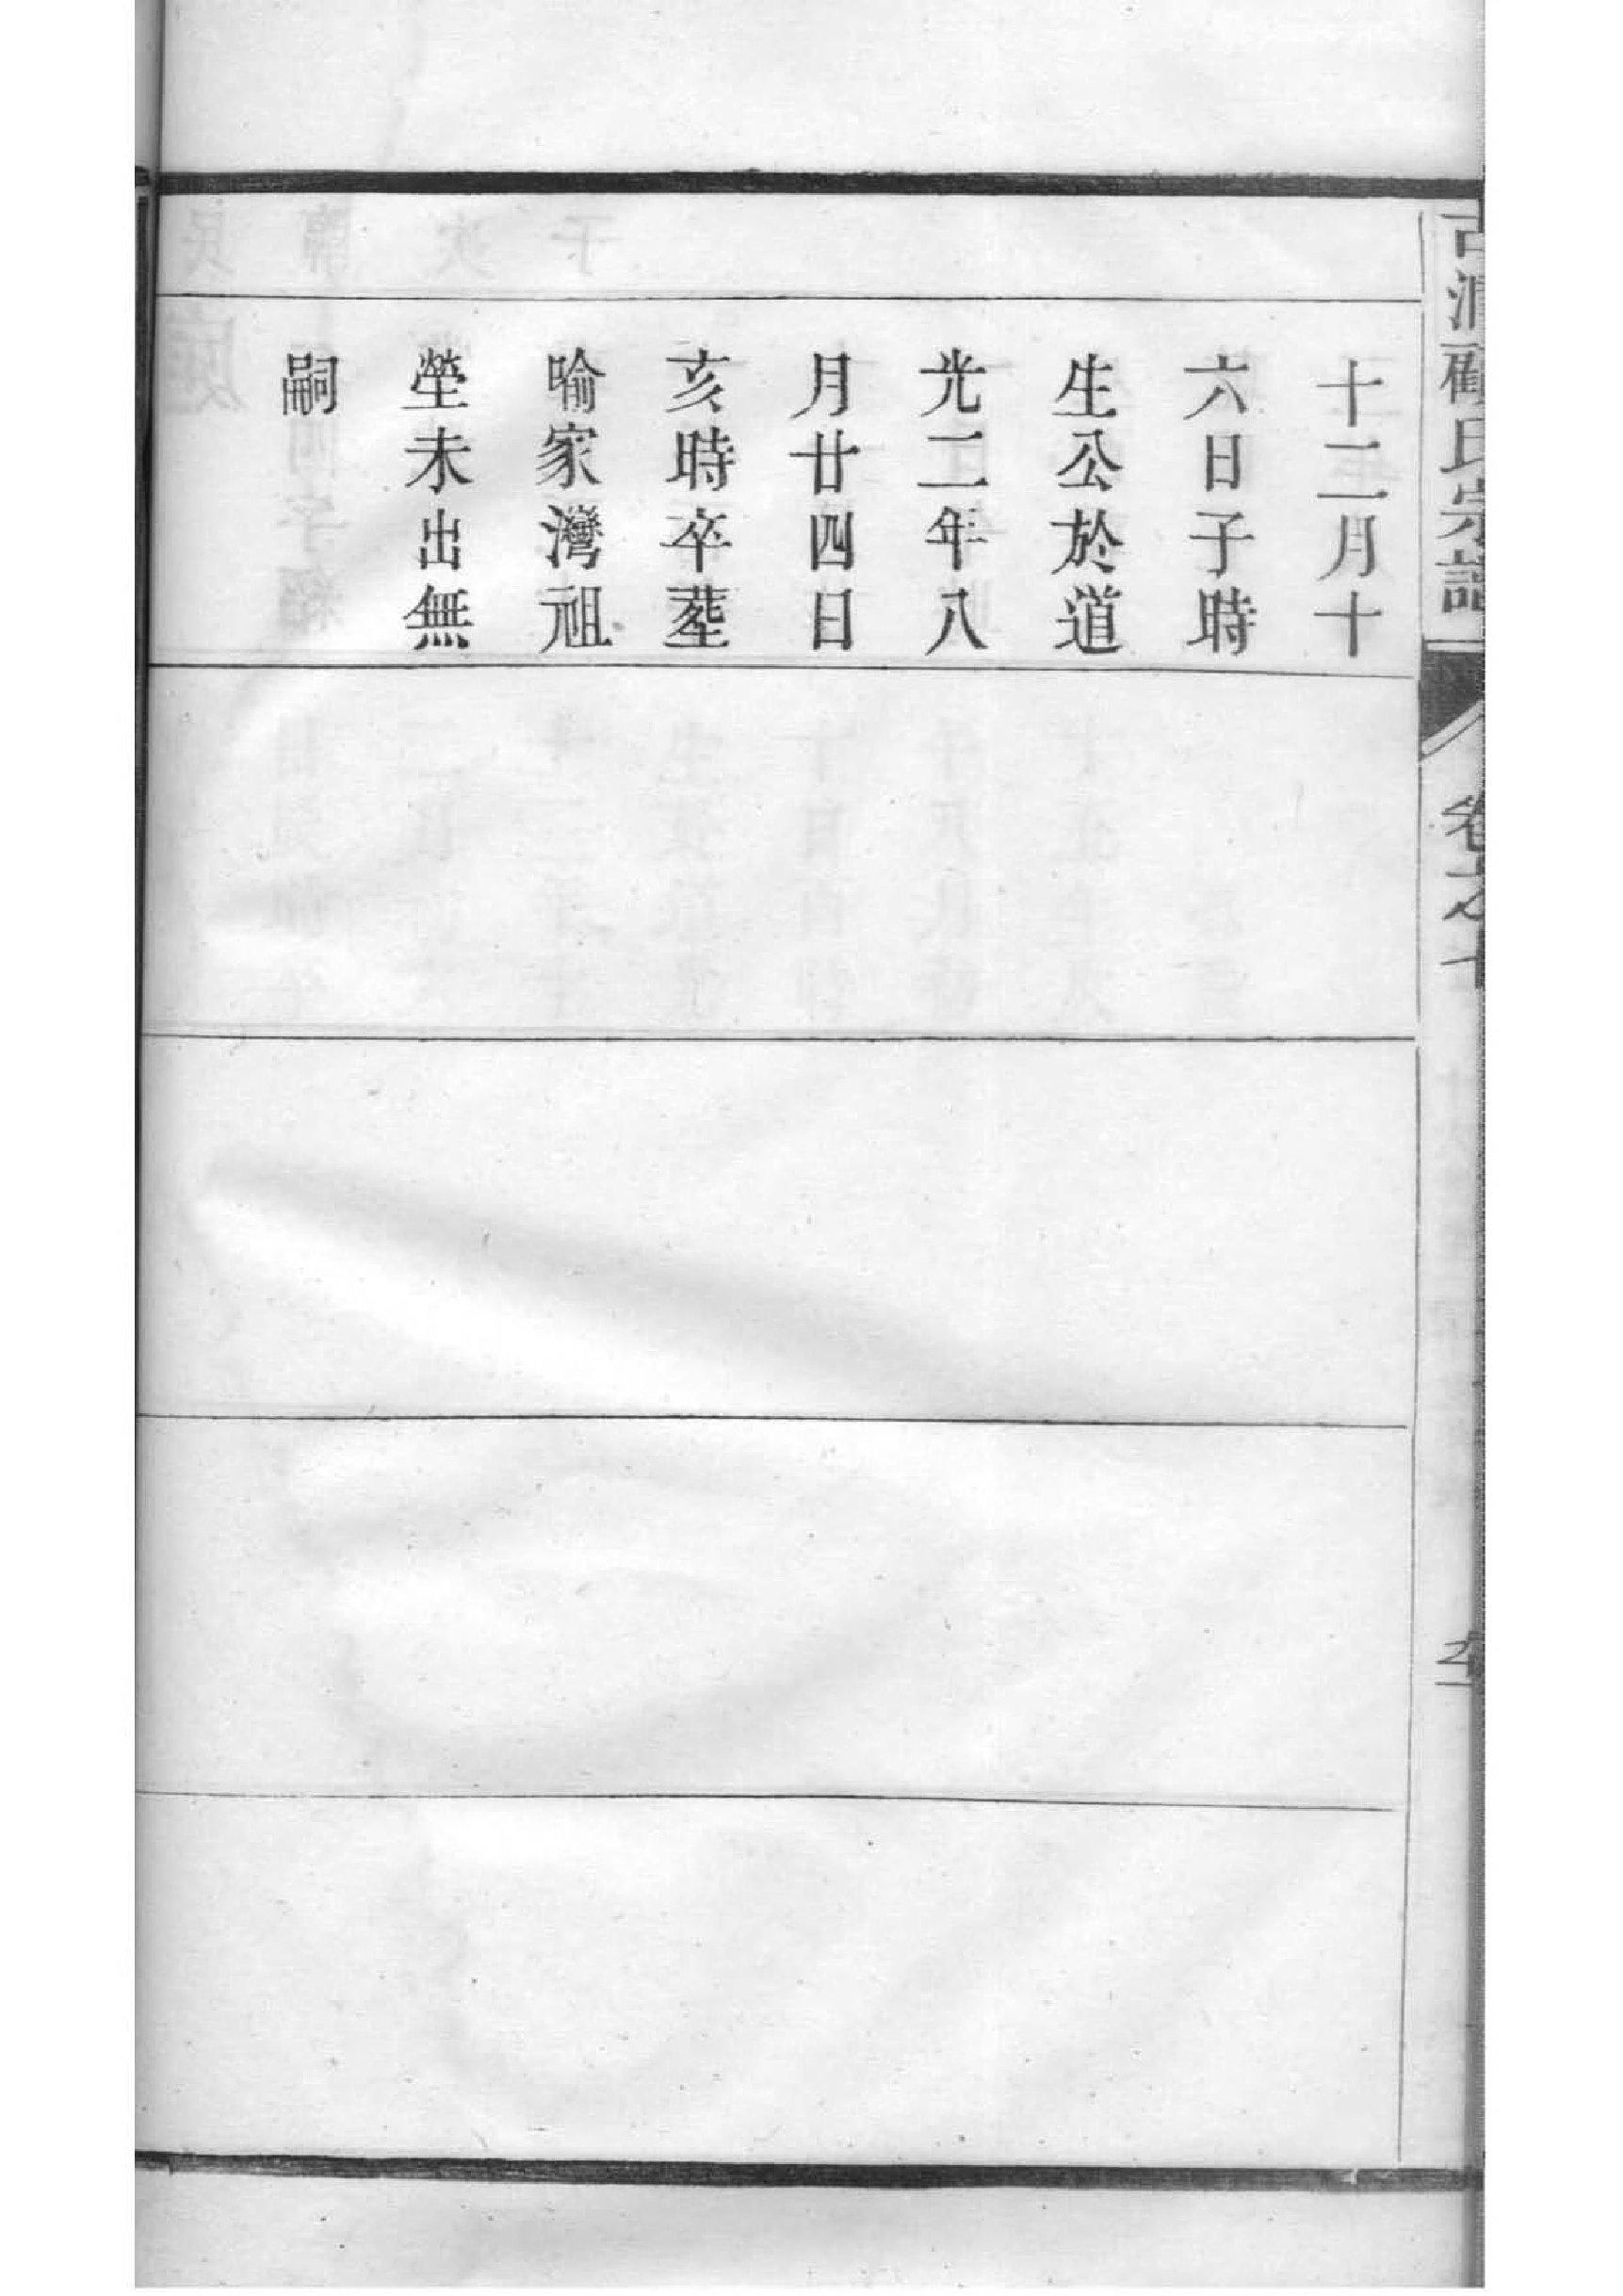 十二月十
六日子時
生公於道
光二年八
月廿四日
亥時卒塟
喻家灣祖
塋未出無
嗣
氏宗譜
卷之